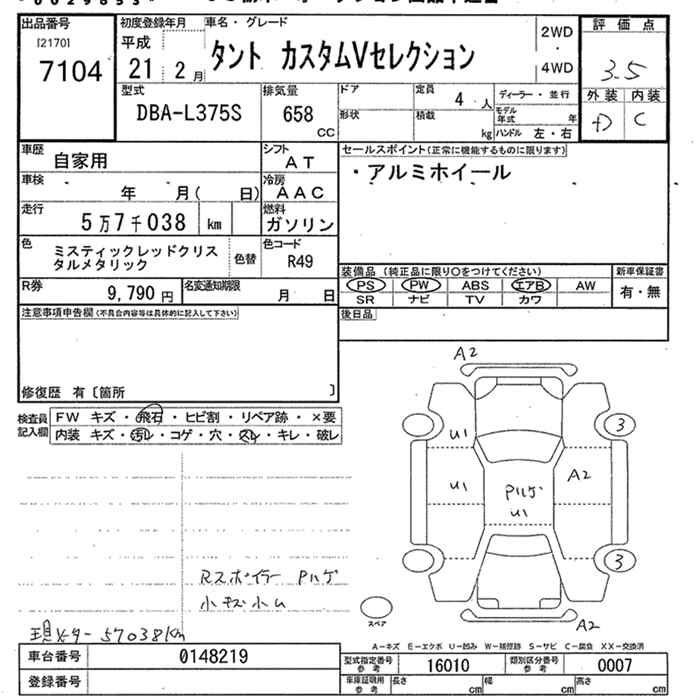 出品番号
[2170]
7104
初度登録年月
平成
21 2月
車名・グレード
タント カスタムVセレクション
2WD
・
4WD
評価点
3.5
外装 内装
D C
型式
DBA-L375S
排気量
658
CC
ドア
形状
定員
4 人
積載
kg
ディーラー・並行
モデル年式 年
ハンドル 左・右
車歴
自家用
シフト
AT
車検
年 月( 日)
冷房
AAC
走行
5万7千038 km
燃料
ガソリン
色
ミスティックレッドクリス
タルメタリック
色替
色コード
R49
R券
9,790 円
名変通知期限
月 日
セールスポイント(正常に機能するものに限ります)
・アルミホイール
装備品 (純正品に限り○をつけてください)
PS PW ABS エアB AW
SR ナビ TV カワ
新車保証書
有・無
後日品
注意事項申告欄(不具合内容等は具体的に記入して下さい)
修復歴 有〔箇所 〕
検査員
記入欄
FW キズ・飛石・ヒビ割・リペア跡・×要
内装 キズ・汚レ・コゲ・穴・スレ・キレ・破レ
A2
3
U1
U1
A2
Pハゲ
U1
3
A2
スペア
Rスポイラー Pハゲ
小キズ小ム
現メーター 57038km
A-キズ E-エクボ U-凹み W-補修跡 S-サビ C-腐食 XX-交換済
車台番号
0148219
登録番号
型式指定番号
参考
16010
類別区分番号
参考
0007
車庫証明用
参考
長さ cm
幅 cm
高さ cm